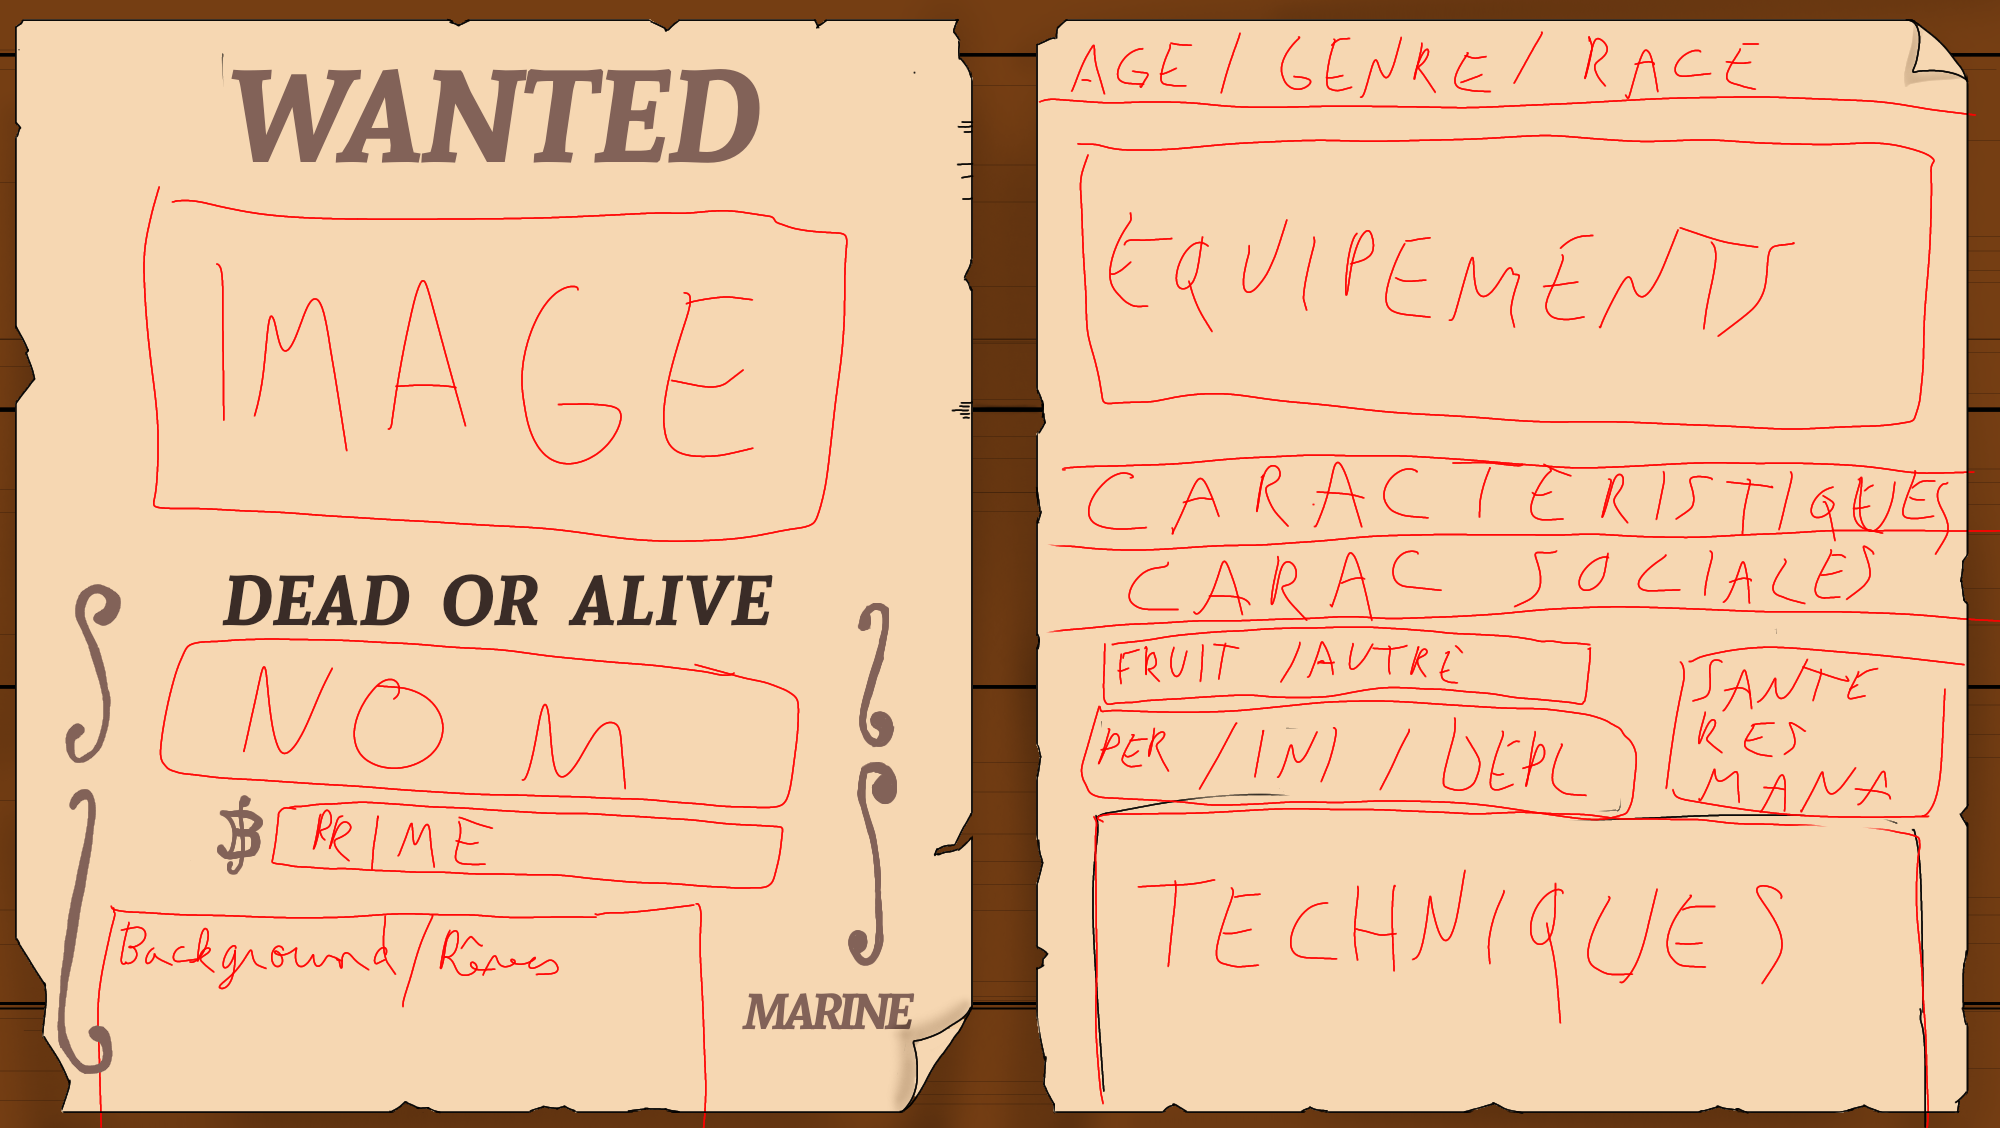 WANTED
IMAGE
DEAD OR ALIVE
NOM
PRIME
Background/Rêves
MARINE
AGE / GENRE / RACE
EQUIPEMENTS
CARACTERISTIQUES
CARAC SOCIALES
FRUIT /AUTRE
PER / INI / DEPL
SANTE
RES
MANA
TECHNIQUES